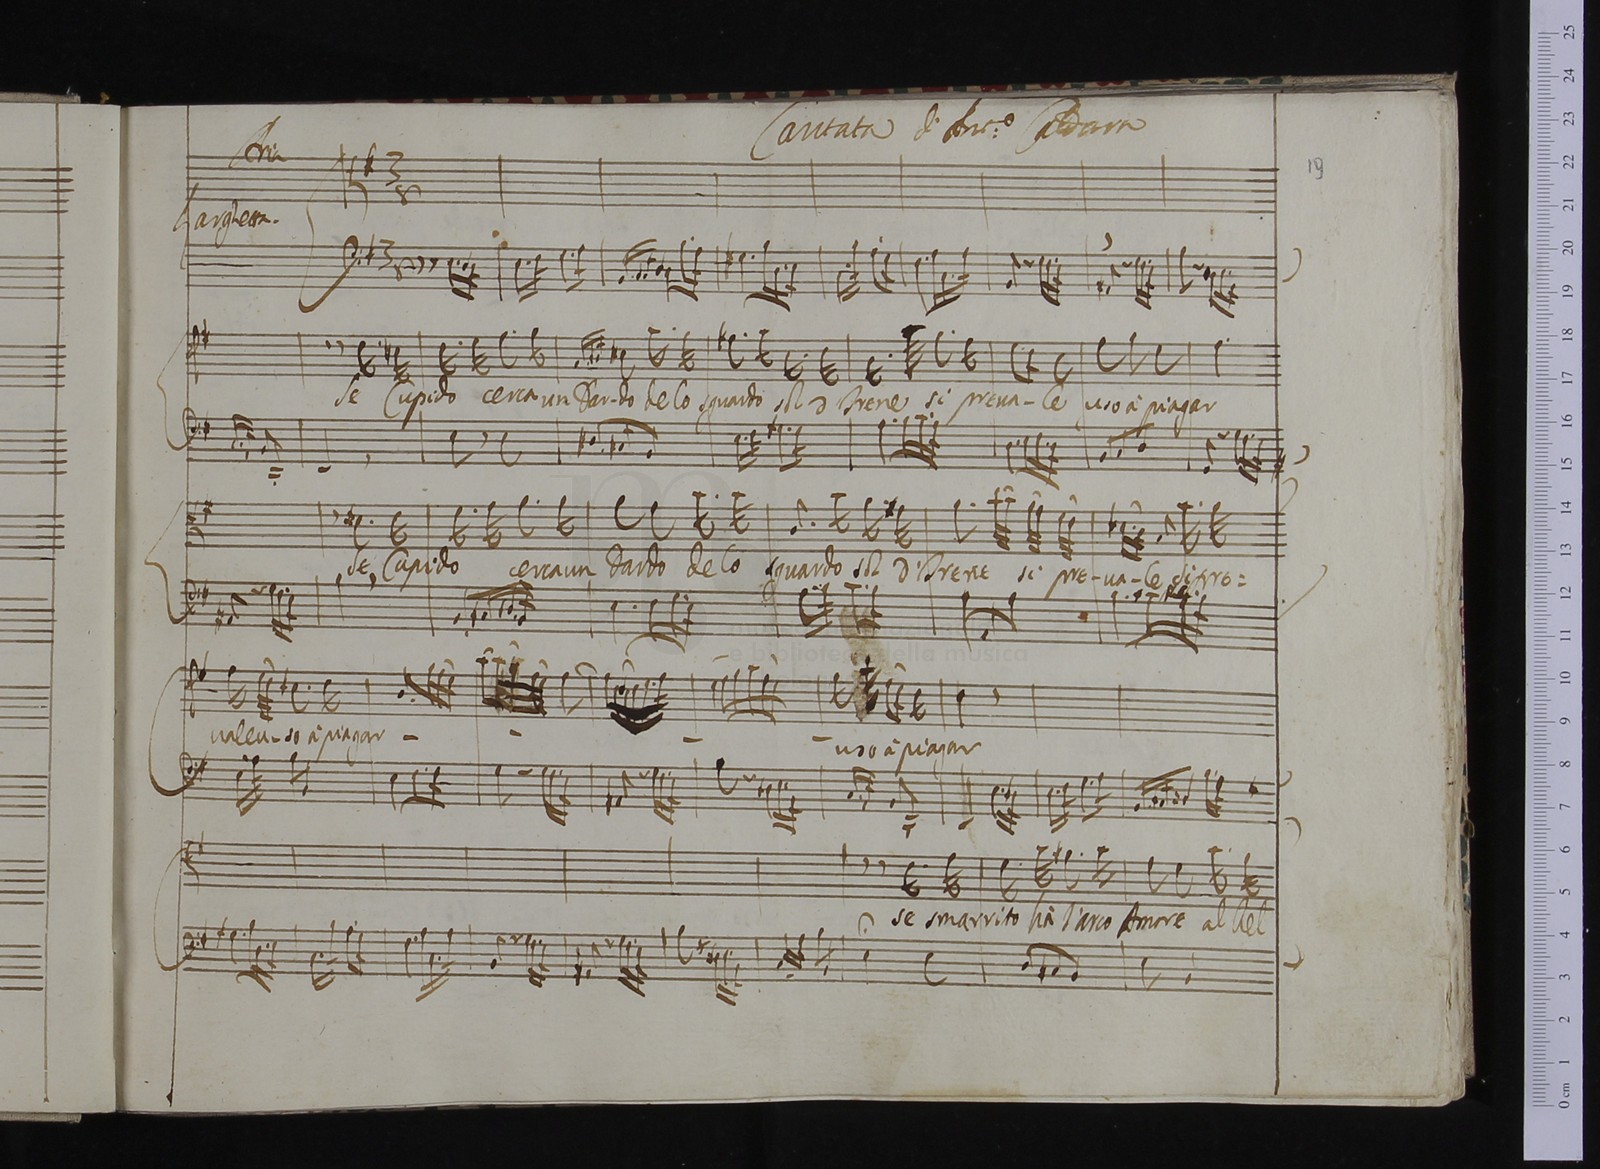 Cantata di Ant.º Caldara
Aria
19
Larghetto.
Se Cupido cerca un Dardo de lo sguardo sol d'Irene si preua-le uso à piagar
se, Cupido cerca un dardo de lo sguardo sol d'Irene si pre-ua-le si pre=
uale u-so à piagar - - - - uso à piagar
se smarrito hà l'arco Amore al bel
museo internazionale
e biblioteca della musica
25
24
23
22
21
20
19
18
17
16
15
14
13
12
11
10
9
8
7
6
5
4
3
2
1
0 cm